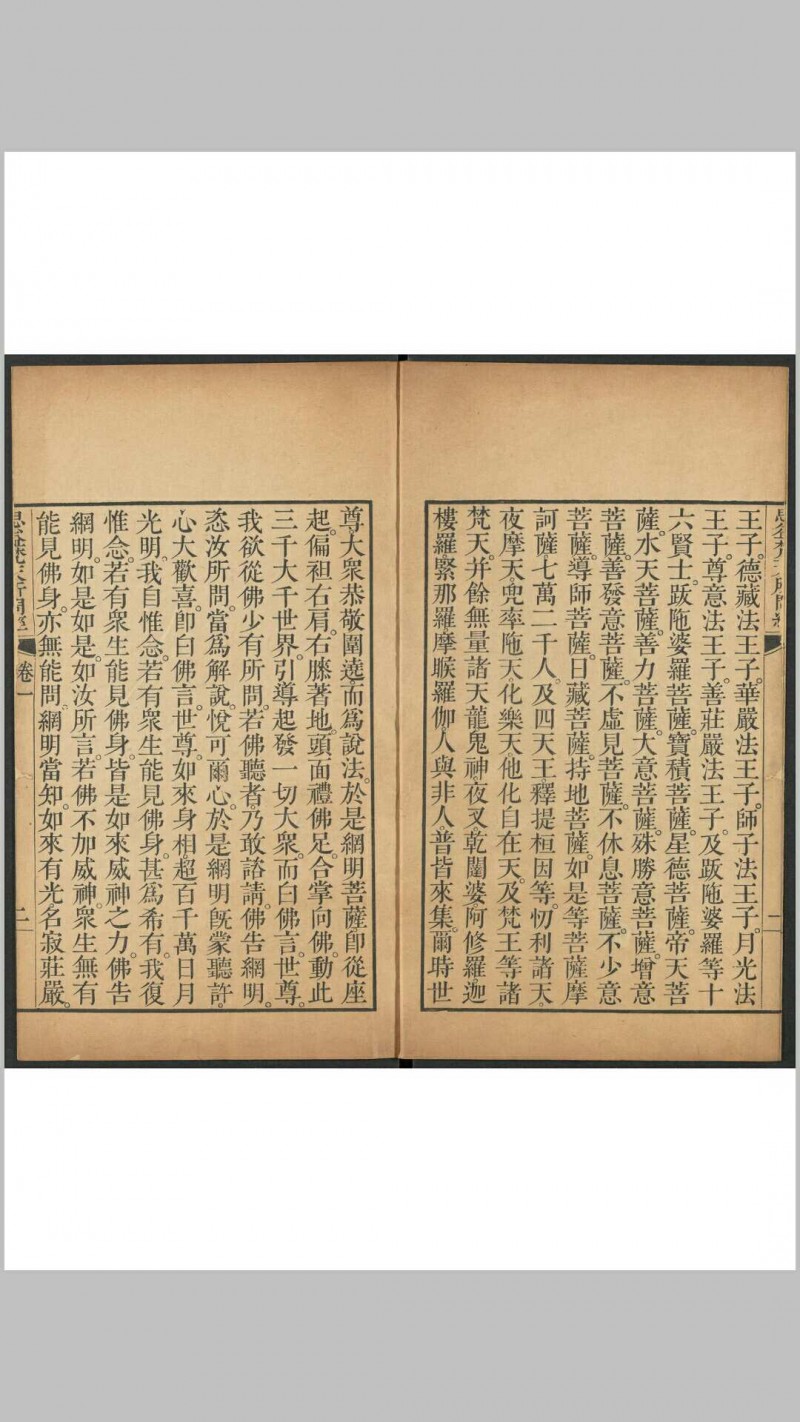 王子。德藏法王子。華嚴法王子。師子法王子。月光法
王子。尊意法王子。善莊嚴法王子。及跋陁婆羅等十
六賢士。跋陁婆羅菩薩。寶積菩薩。星德菩薩。帝天菩
薩。水天菩薩。善力菩薩。大意菩薩。殊勝意菩薩。增意
菩薩。善發意菩薩。不虛見菩薩。不休息菩薩。不少意
菩薩。導師菩薩。日藏菩薩。持地菩薩。如是等菩薩摩
訶薩七萬二千人。及四天王釋提桓因等。忉利諸天。
夜摩天。兜率陁天。化樂天。他化自在天。及梵王等諸
梵天。并餘無量諸天龍鬼神夜叉乾闥婆阿修羅迦
樓羅緊那羅摩睺羅伽人與非人普皆來集。爾時世
尊大衆恭敬圍遶而爲說法。於是網明菩薩卽從座
起。偏袒右肩。右膝著地。頭面禮佛足。合掌向佛。動此
三千大千世界。引導起發一切大衆。而白佛言。世尊。
我欲從佛少有所問。若佛聽者。乃敢諮請。佛告網明。
恣汝所問。當爲解說。悅可爾心。於是網明旣蒙聽許。
心大歡喜。卽白佛言。世尊。如來身相。超百千萬日月
光明。我自惟念。若有衆生能見佛身。甚爲希有。我復
惟念。若有衆生能見佛身。皆是如來威神之力。佛告
網明。如是如是。如汝所言。若佛不加威神。衆生無有
能見佛身。亦無能問。網明當知。如來有光名寂莊嚴。
卷一
二